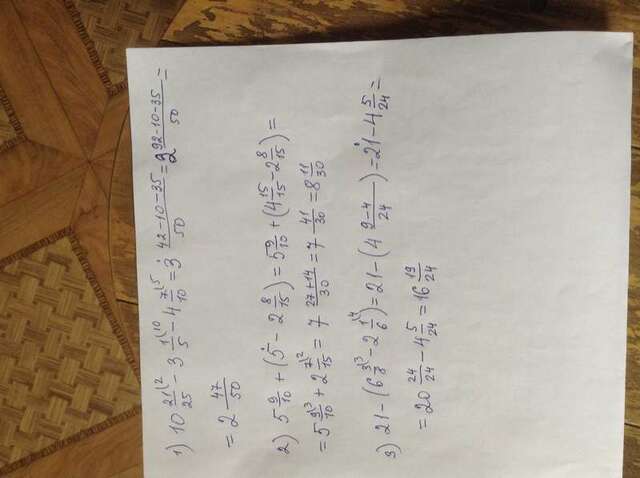 1) 10 21/25\2 − 3 1/5\10 − 4 7/10\5 = 3̇ (42−10−35)/50 = 2 (92−10−35)/50 =
= 2 47/50
2) 5 9/10 + (5̇ − 2 8/15) = 5 9/10 + (4 15/15 − 2 8/15) =
= 5 9/10\3 + 2 7/15\2 = 7 (27+14)/30 = 7 41/30 = 8 11/30
3) 21 − (6 3/8\3 − 2 1/6\4) = 21 − (4 (9−4)/24) = 2̇1 − 4 5/24 =
= 20 24/24 − 4 5/24 = 16 19/24